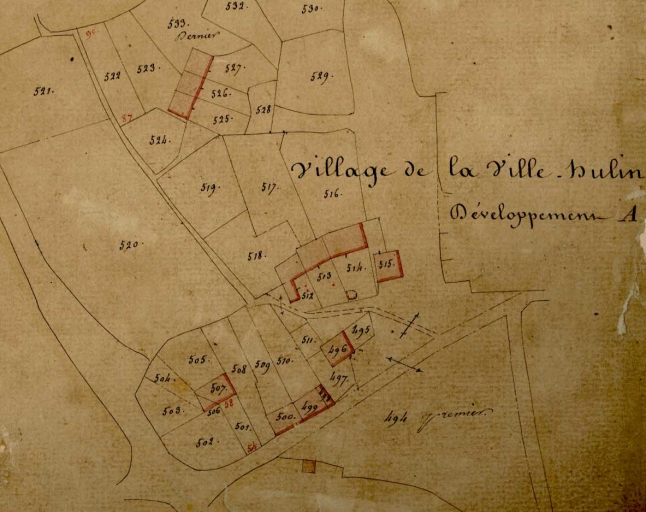 532.
530.
533.
Dernier
521.
522
523.
527.
529.
526.
525.
528
524.
57
519.
517.
Village de la Ville-hulin
516.
Développement A
520.
518.
514.
515.
513
512
495
511.
496
505.
508
509
510.
497
504.
507.
58
506
503.
499
500.
502
501.
494 premier.